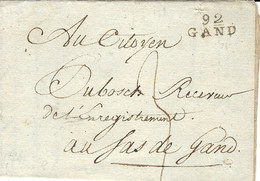 92
GAND
Au Citoyen
Dubosch Receveur
de l'Enregistrement
au Sas de Gand.